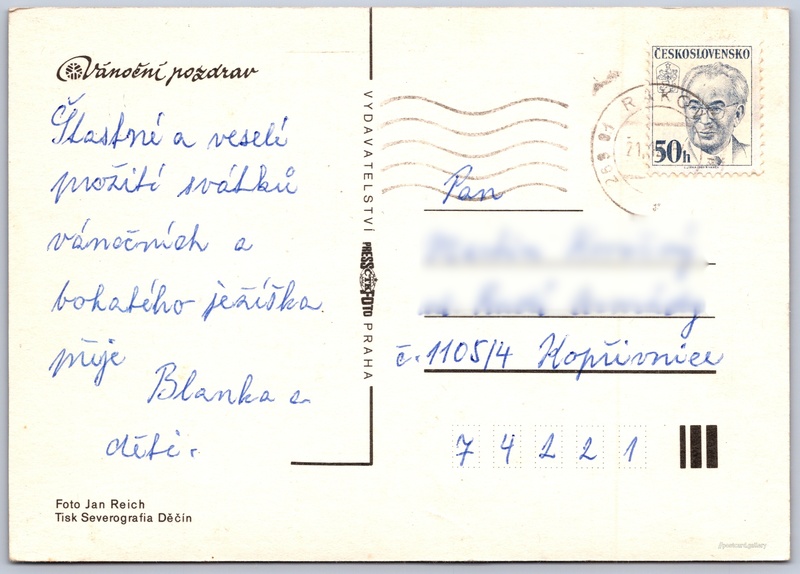 Vánoční pozdrav
Šťastné a veselé
prožití svátků
vánočních a
bohatého ježíška
přeje
Blanka a
děti.
Foto Jan Reich
Tisk Severografia Děčín
VYDAVATELSTVÍ PRESSFOTO PRAHA
ČTK
ČESKOSLOVENSKO
50h
RAKO
Pan
č. 1105/4 Kopřivnice
7 4 2 2 1